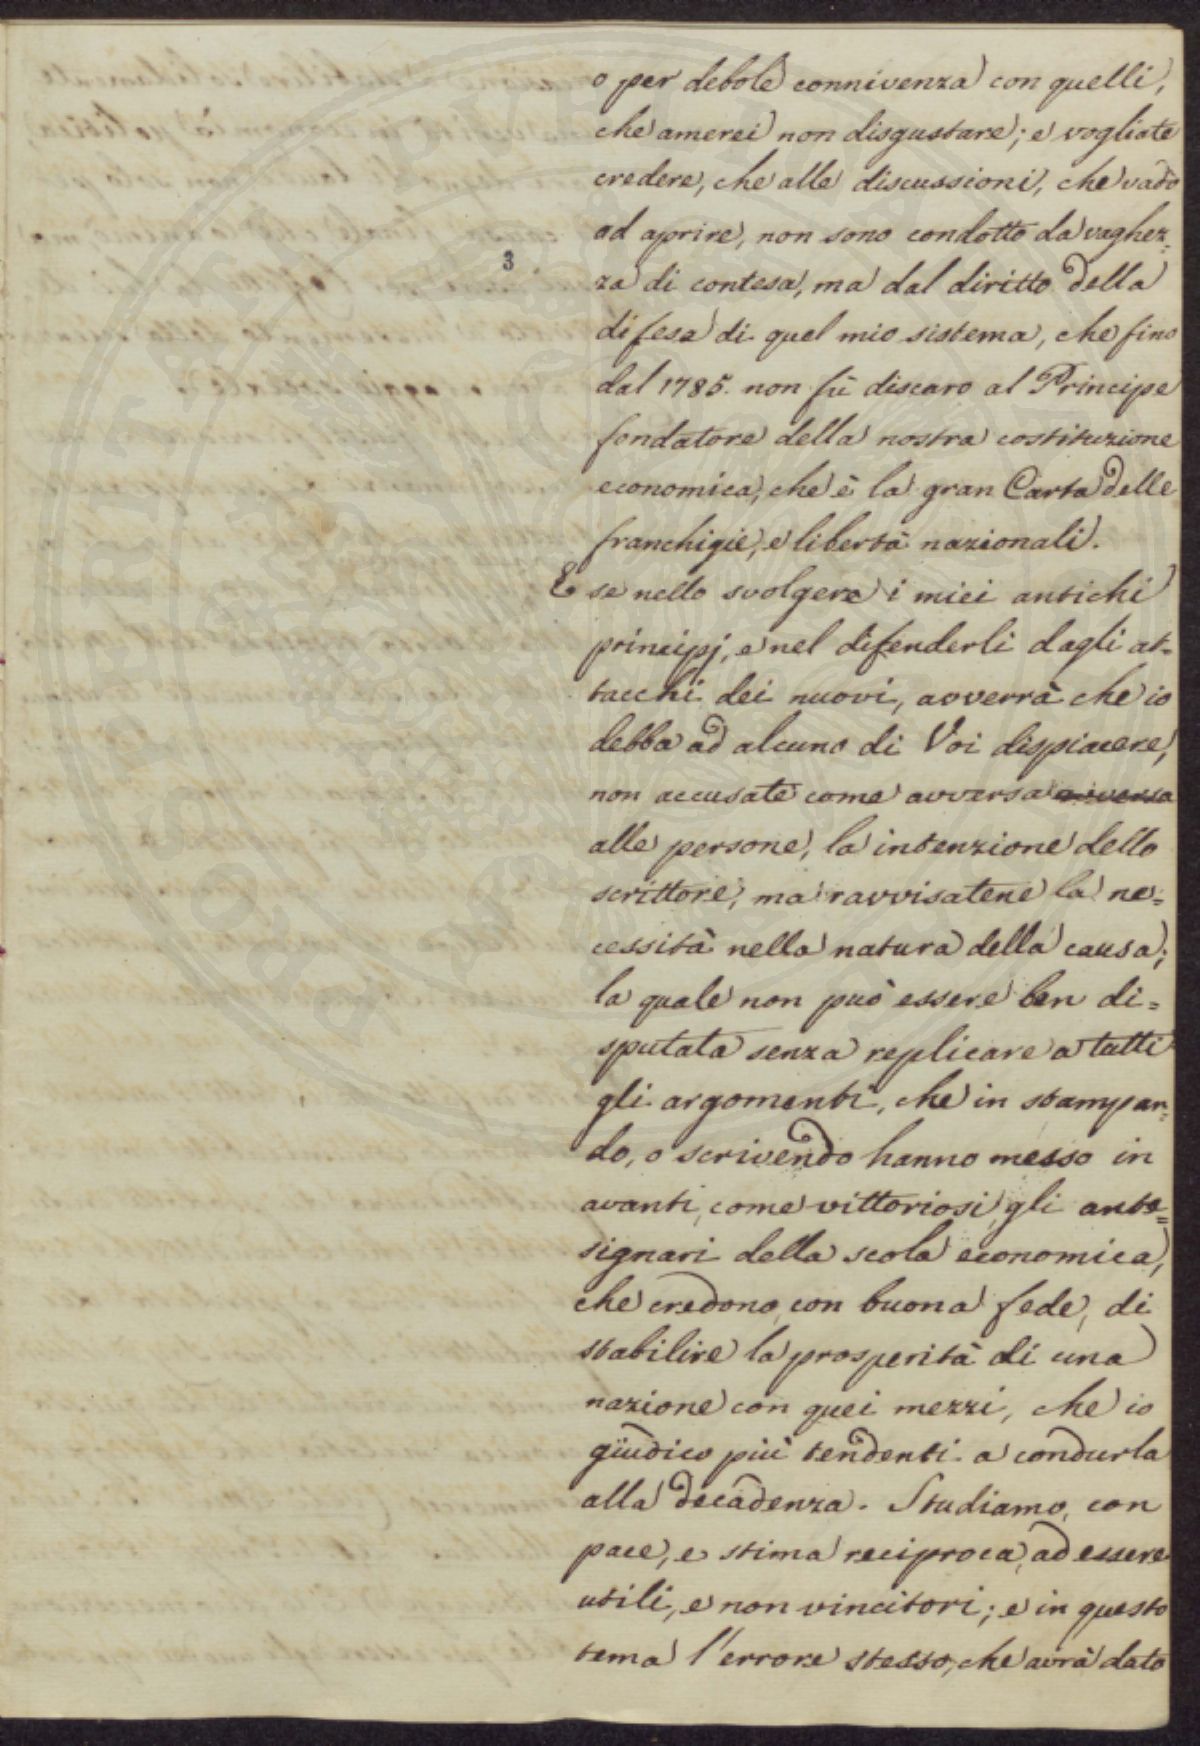 o per debole connivenza con quelli,
che amerei non disgustare; e vogliate
credere, che alle discussioni, che vado
ad aprire, non sono condotto da vaghez-
3
za di contesa, ma dal diritto della
difesa di quel mio sistema, che fino
dal 1785. non fù discaro al Principe
fondatore della nostra costituzione
economica, che è la gran Carta delle
franchigie, e libertà nazionali.
E se nello svolgere i miei antichi
principj, e nel difenderli dagli at-
tacchi dei nuovi, avverrà che io
debba ad alcuno di Voi dispiacere,
non accusate come avversa avversa
alle persone, la intenzione dello
scrittore, ma ravvisatene la ne=
cessità nella natura della causa;
la quale non può essere ben di=
sputata senza replicare a tutti
gli argomenti, che in stampan=
do, o scrivendo hanno messo in
avanti, come vittoriosi, gli ante=
signari della scola economica,
che credono, con buona fede, di
stabilire la prosperità di una
nazione con quei mezzi, che io
giudico più tendenti a condurla
alla decadenza. Studiamo, con
pace, e stima reciproca, ad essere
utili, e non vincitori; e in questo
tema l'errore stesso, che avrà dato